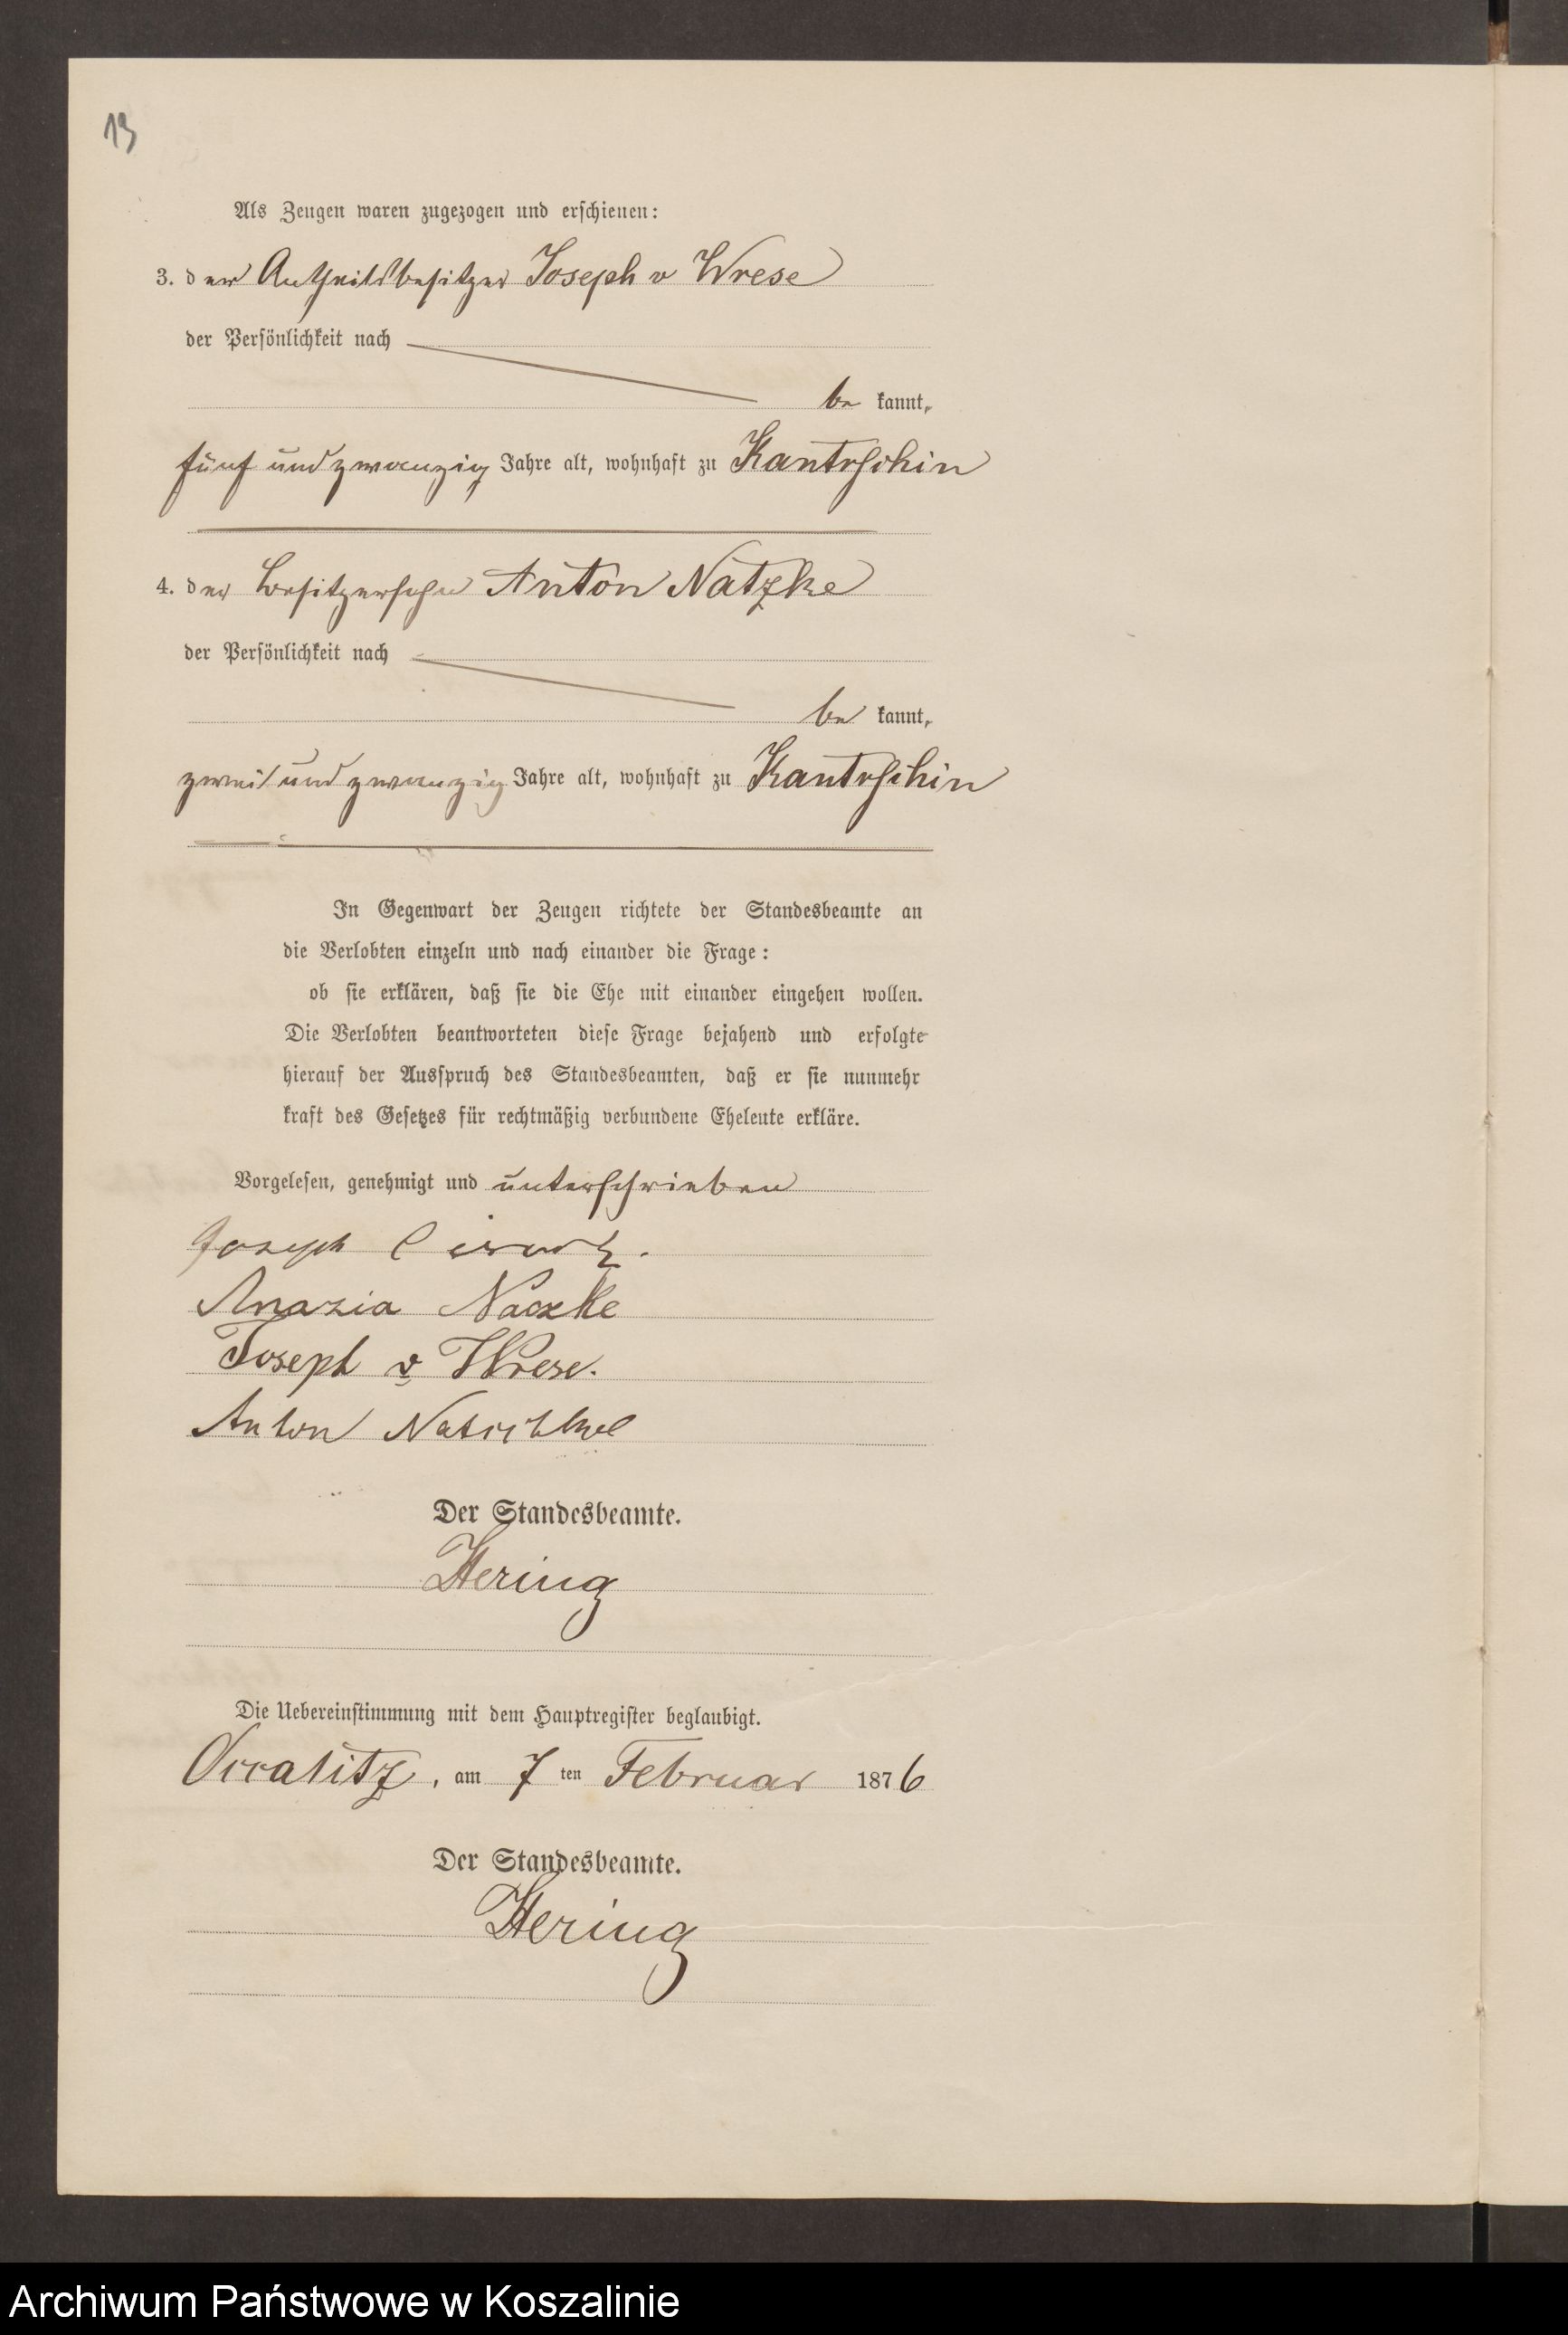 13
Als Zeugen waren zugezogen und erschienen:
3. der Antheilsbesitzer Joseph v Wrese
der Persönlichkeit nach
be kannt,
fünf und zwanzig Jahre alt, wohnhaft zu Kantrschin
4. der Besitzersohn Anton Natzke
der Persönlichkeit nach
be kannt,
zwei und zwanzig Jahre alt, wohnhaft zu Kantrschin
In Gegenwart der Zeugen richtete der Standesbeamte an
die Verlobten einzeln und nach einander die Frage:
ob sie erklären, daß sie die Ehe mit einander eingehen wollen.
Die Verlobten beantworteten diese Frage bejahend und erfolgte
hierauf der Ausspruch des Standesbeamten, daß er sie nunmehr
kraft des Gesetzes für rechtmäßig verbundene Eheleute erkläre.
Vorgelesen, genehmigt und unterschrieben
Joseph
Anazia Naczke
Joseph v Wrese.
Anton
Der Standesbeamte.
Hering
Die Uebereinstimmung mit dem Hauptregister beglaubigt.
, am 7 ten Februar 1876
Der Standesbeamte.
Hering
Archiwum Państwowe w Koszalinie